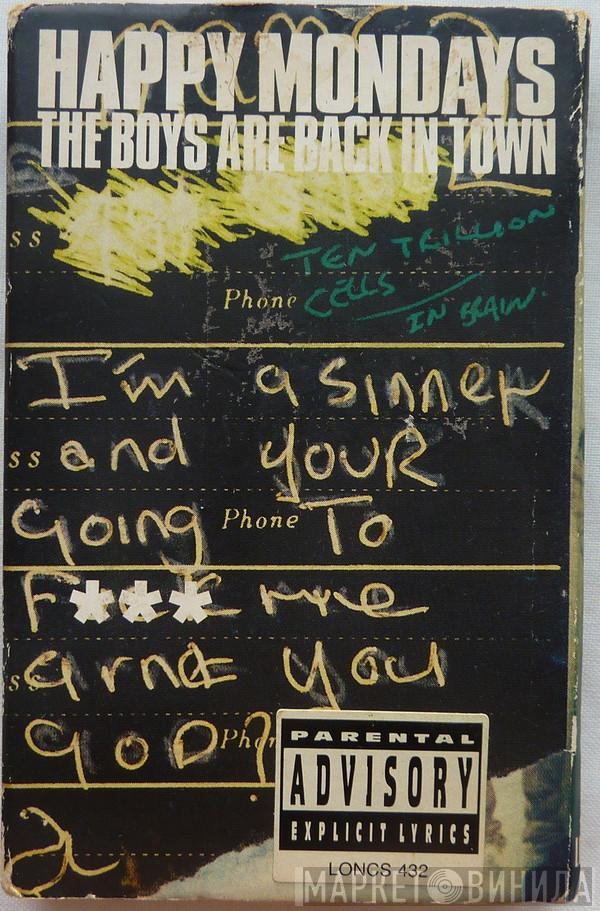 HAPPY MONDAYS
THE BOYS ARE BACK IN TOWN
ss
TEN TRILLION
Phone CELLS
IN BRAIN.
I'm a SinneR
ss and YOUR
Going Phone To
F*** me
ss arnt you
GOD? Phon
PARENTAL
ADVISORY
EXPLICIT LYRICS
LONCS 432
МАРКЕТ ВИНИЛА